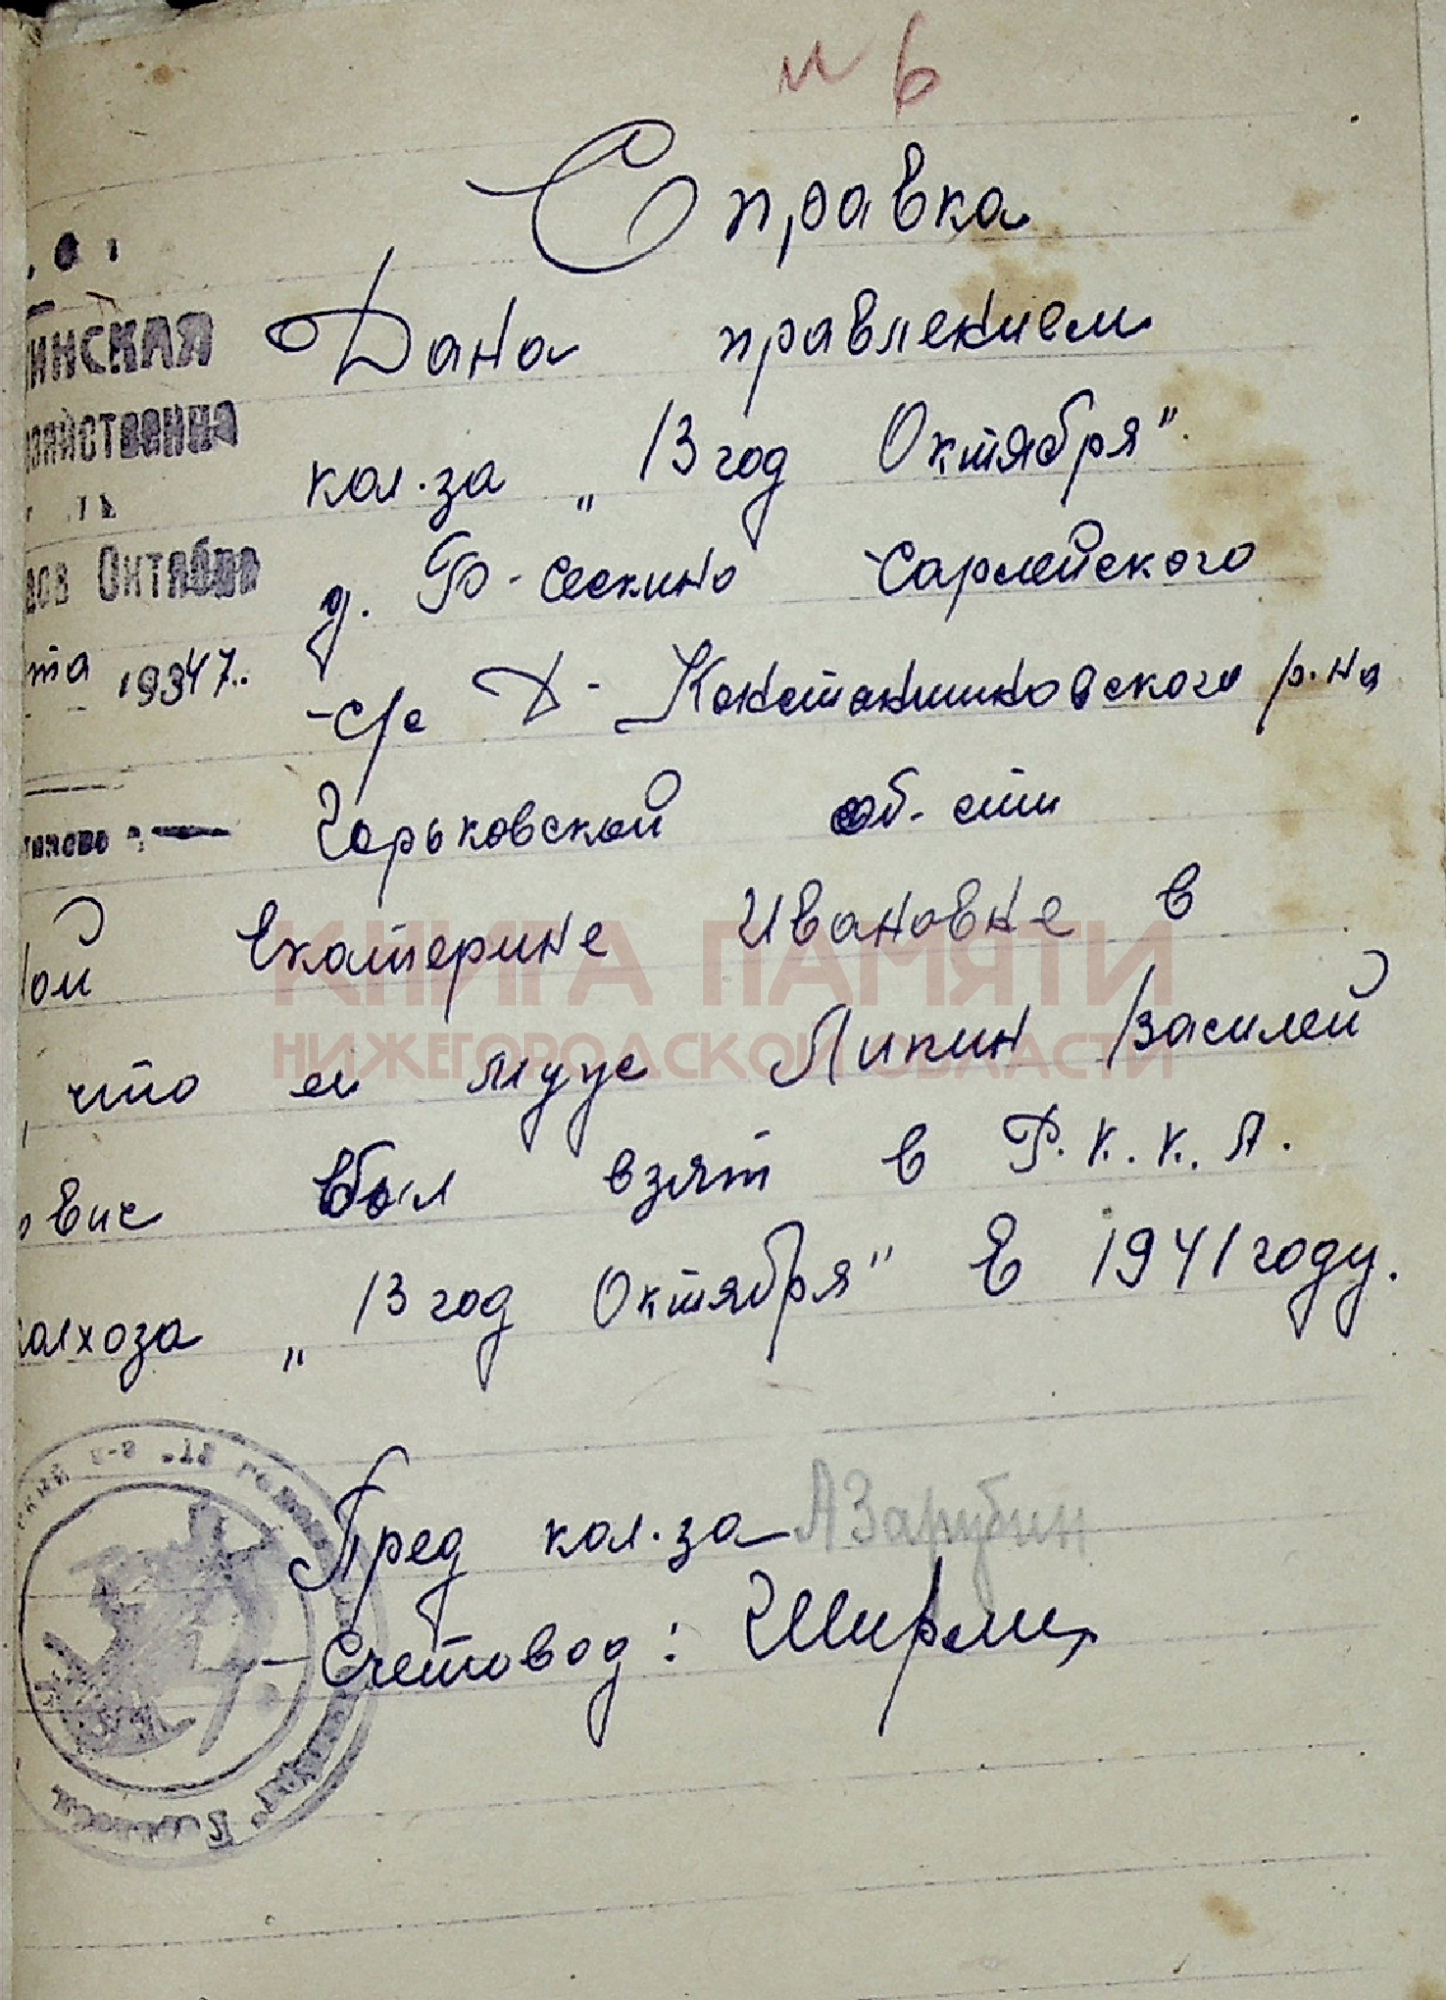 № 6
Справка
Дана правлением
кол.за „13 год Октября"
д. Б-Сескино Сарлейского
с/с Д-Константиновского р.на
Горьковской об-сти
ой Екатерине Ивановне в
, что ей муж Липин Василей
ович был взят в Р.К.К.А.
колхоза „13 год Октября" в 1941 году.
Пред кол.за АЗарубин
Счетовод:
инская
озяйственна
Октября
та 1947.
КНИГА ПАМЯТИ
НИЖЕГОРОДСКОЙ ОБЛАСТИ